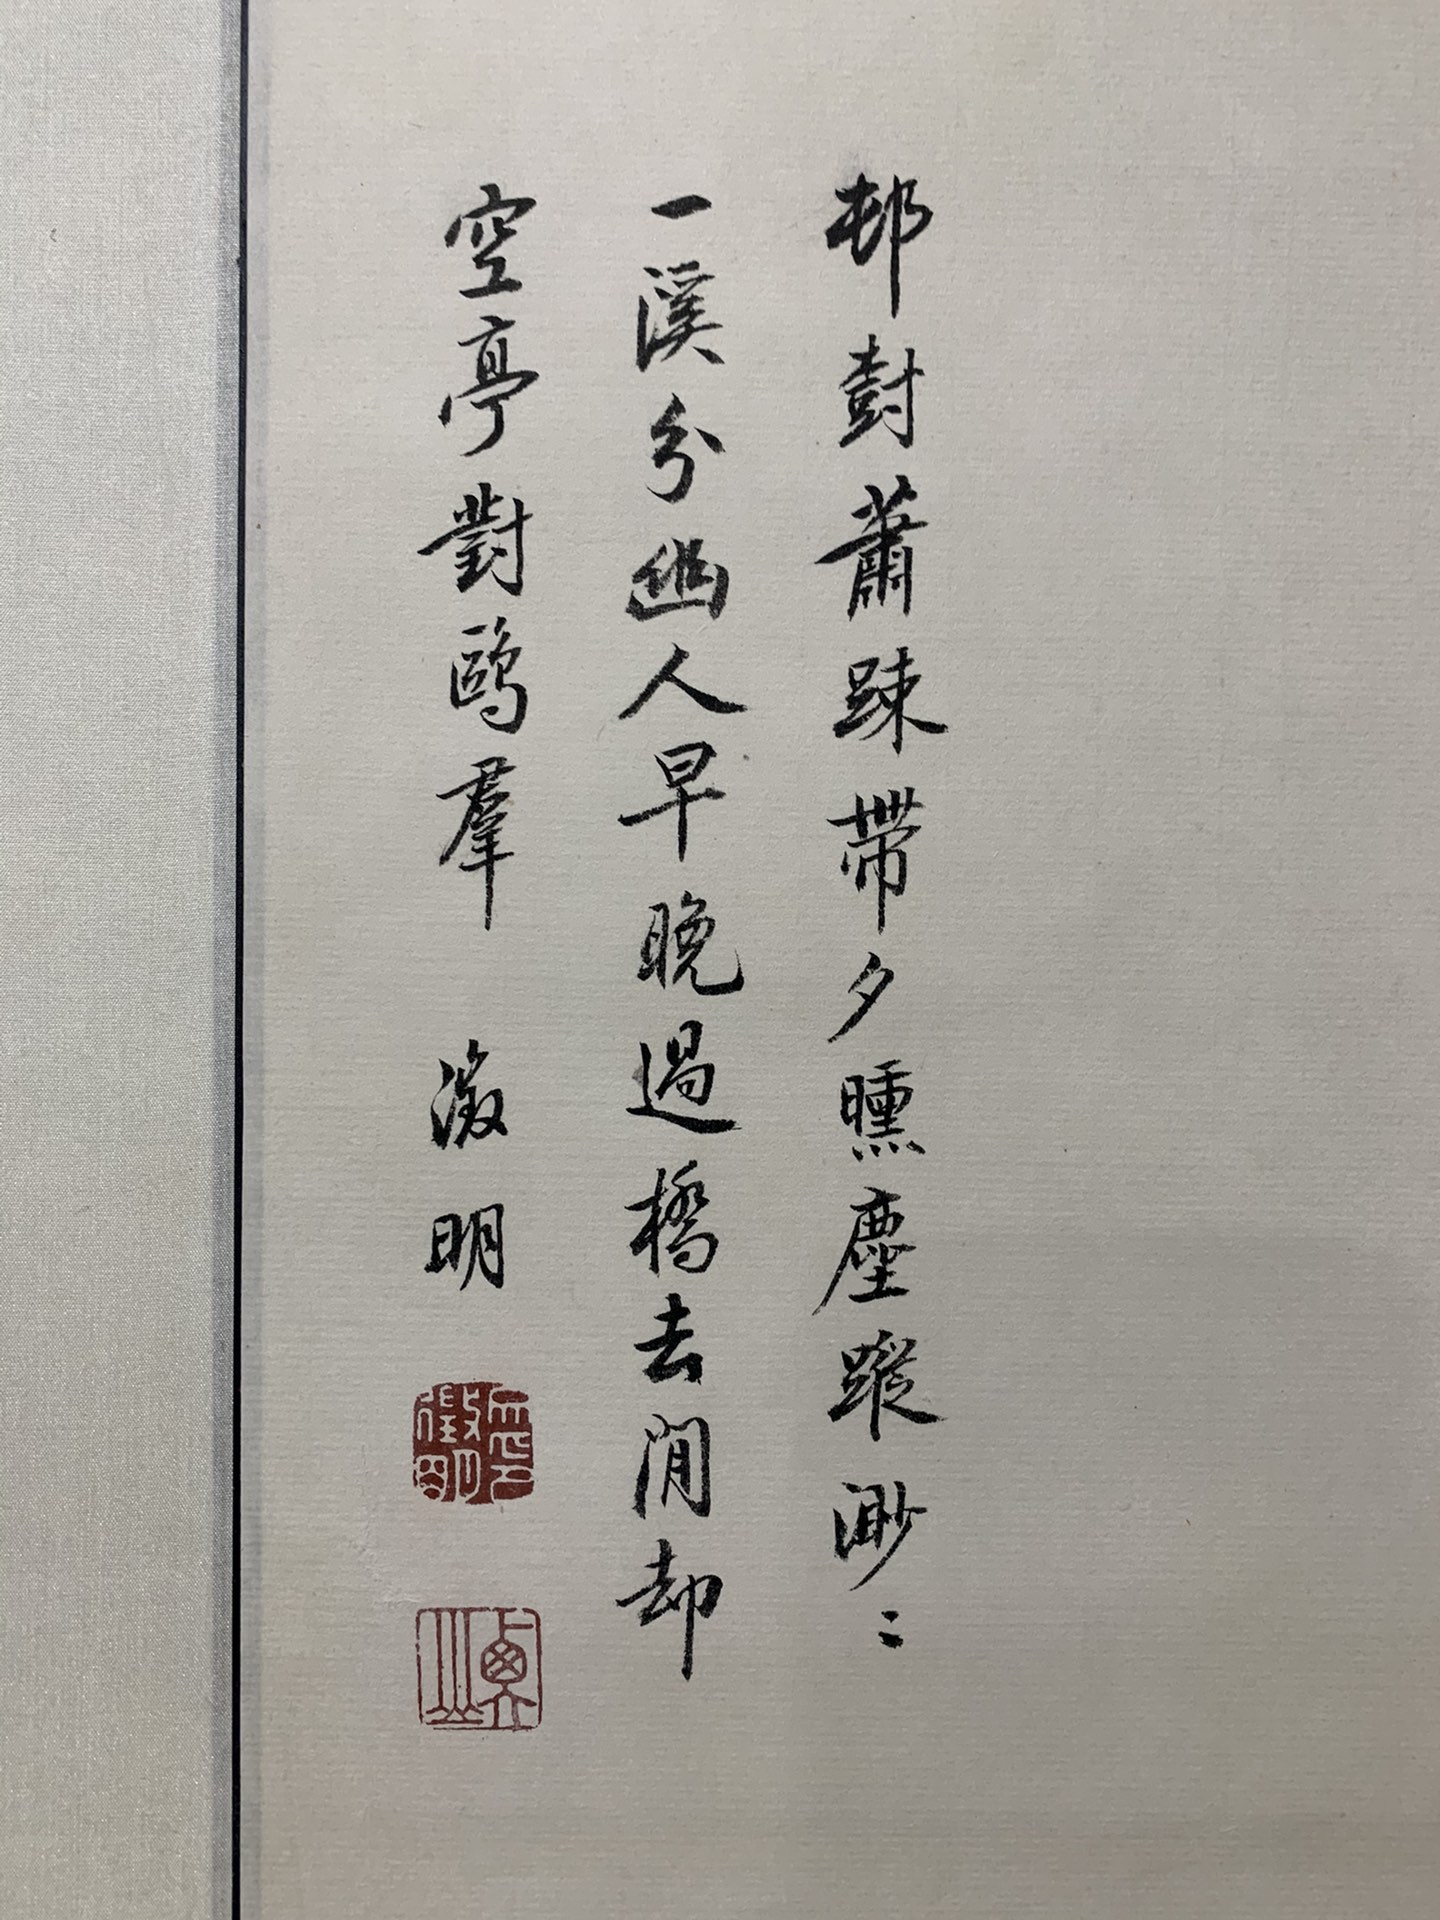 邨尌蕭踈帶夕曛塵蹤渺〻
一溪分幽人早晚過橋去閒却
空亭對鷗羣 徵明